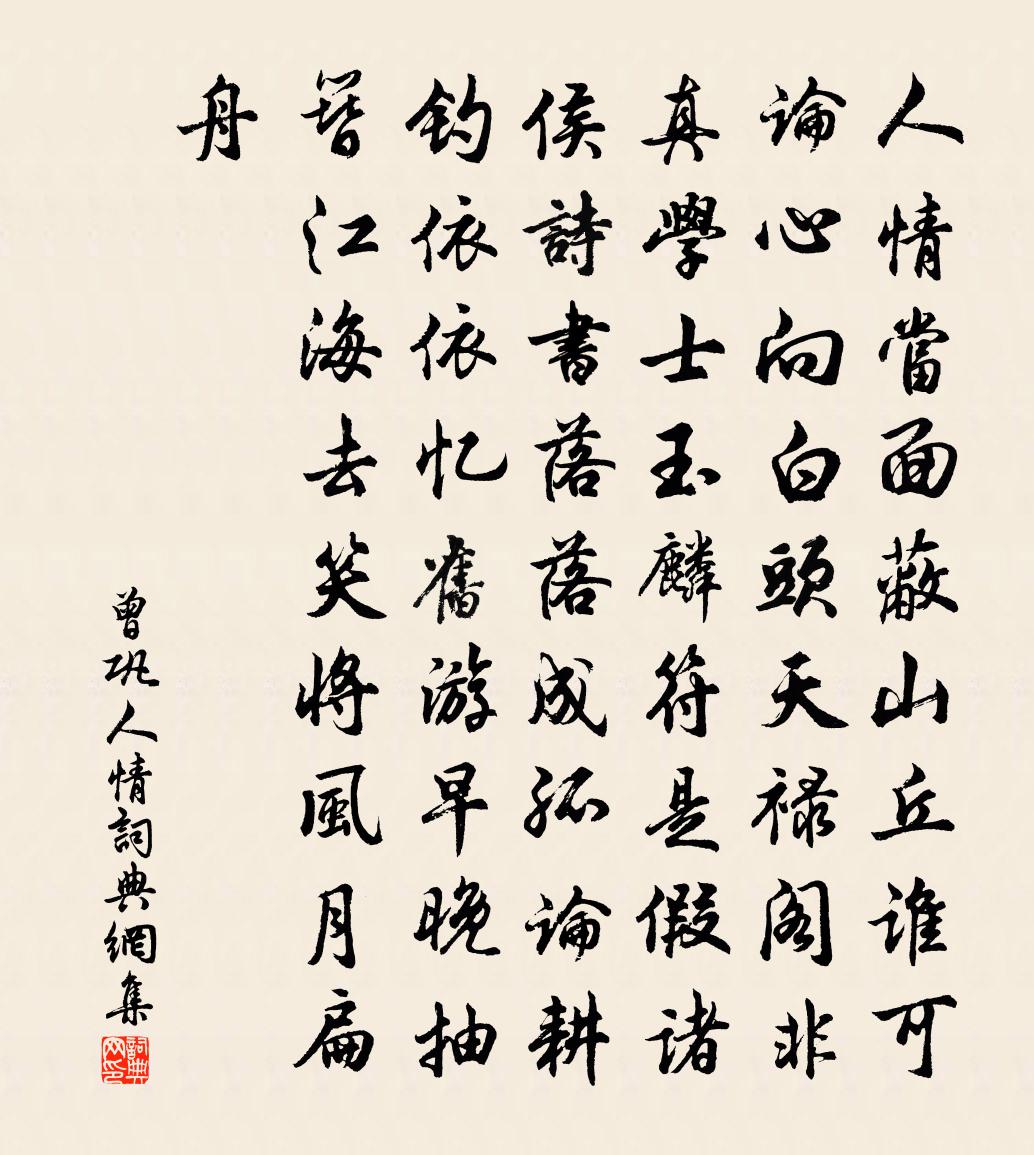 人情當面蔽山丘谁可
論心向白頭天禄阁非
真學士玉麟符是假诸
侯詩書落落成孤論耕
釣依依忆舊游早晚抽
簪江海去笑將風月扁
舟
曾巩人情詞典網集
詞典网印